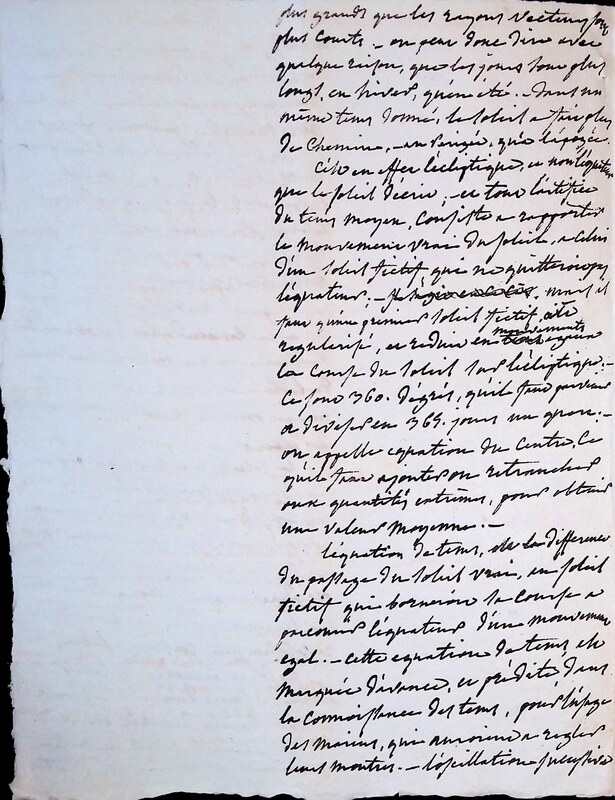 plus grands que les rayons vecteurs sont
plus courts. - on peut donc dire avec
quelque raison, que les jours sont plus
longs, en hiver, qu'en eté. - dans un
même tems donné, le soleil a fait plus
de chemin, - au Perigée, qu'a l'apogée.
C'est en effet l'écliptique, et non l'équateur
que le soleil décrit, - et tout l'artifice
du tems moyen, consiste a rapporter
le mouvement vrai du soleil, a celui
d'un soleil fictif qui ne quitteroit pas
l'équateur, - mais il
faut qu'un premier soleil fictif, ait
regularisé, et reduit en mouvements
la course du soleil sur l'écliptique. -
Ce sont 360. degrés, qu'il faut parvenir
a diviser en 365. jours un quart. -
on appelle equation du centre, ce
qu'il faut ajouter ou retrancher
aux quantités extrêmes, pour obtenir
une valeur moyenne. -
l'équation du tems, est la difference
du passage du soleil vrai, au soleil
fictif qui borneroit sa course a
parcourir l'équateur d'un mouvement
egal. - cette equation du tems, est
marquée d'avance, et prédite dans
la connoissance des tems, pour l'usage
des marins, qui auroient a regler
leurs montres. - l'oscillation successive